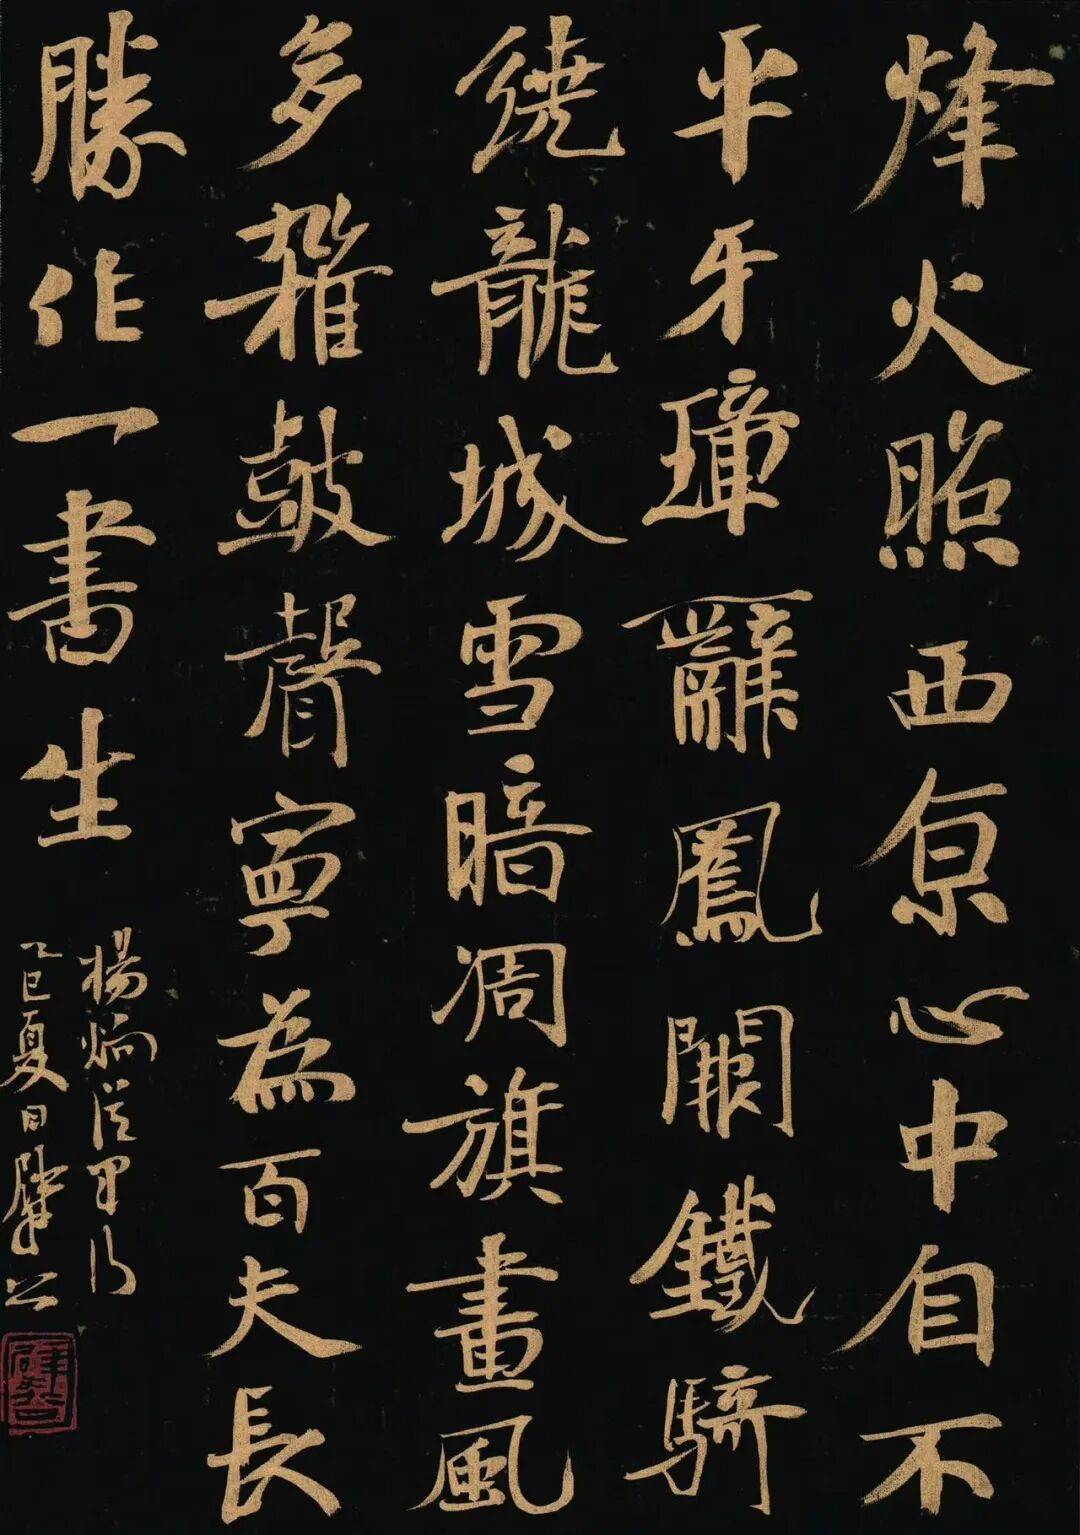 烽火照西京心中自不
平牙璋辭鳳闕鐵騎
绕龍城雪暗凋旗畫風
多雜鼓聲寧為百夫長
勝作一書生
楊炯從軍行
乙巳夏日